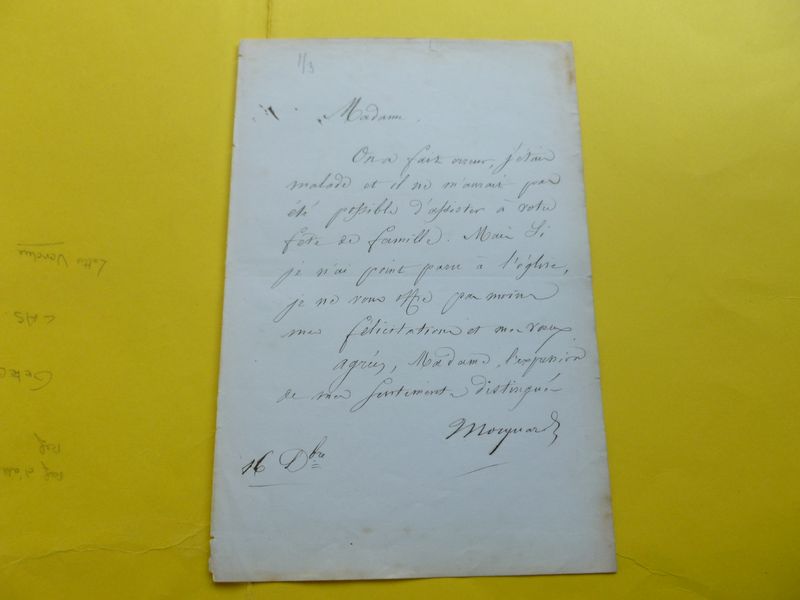 1/3
Madame,
On a fait erreur, j'étais
malade et il ne m'aurait pas
été possible d'assister à votre
fête de famille. Mais si
je n'ai point paru à l'église,
je ne vous offre pas moins
mes félicitations et mes vœux
agréez, Madame, l'expression
de mes sentiments distingués
Mocquard
16 Dbre
Lettre Vendue
LAS.
Ref